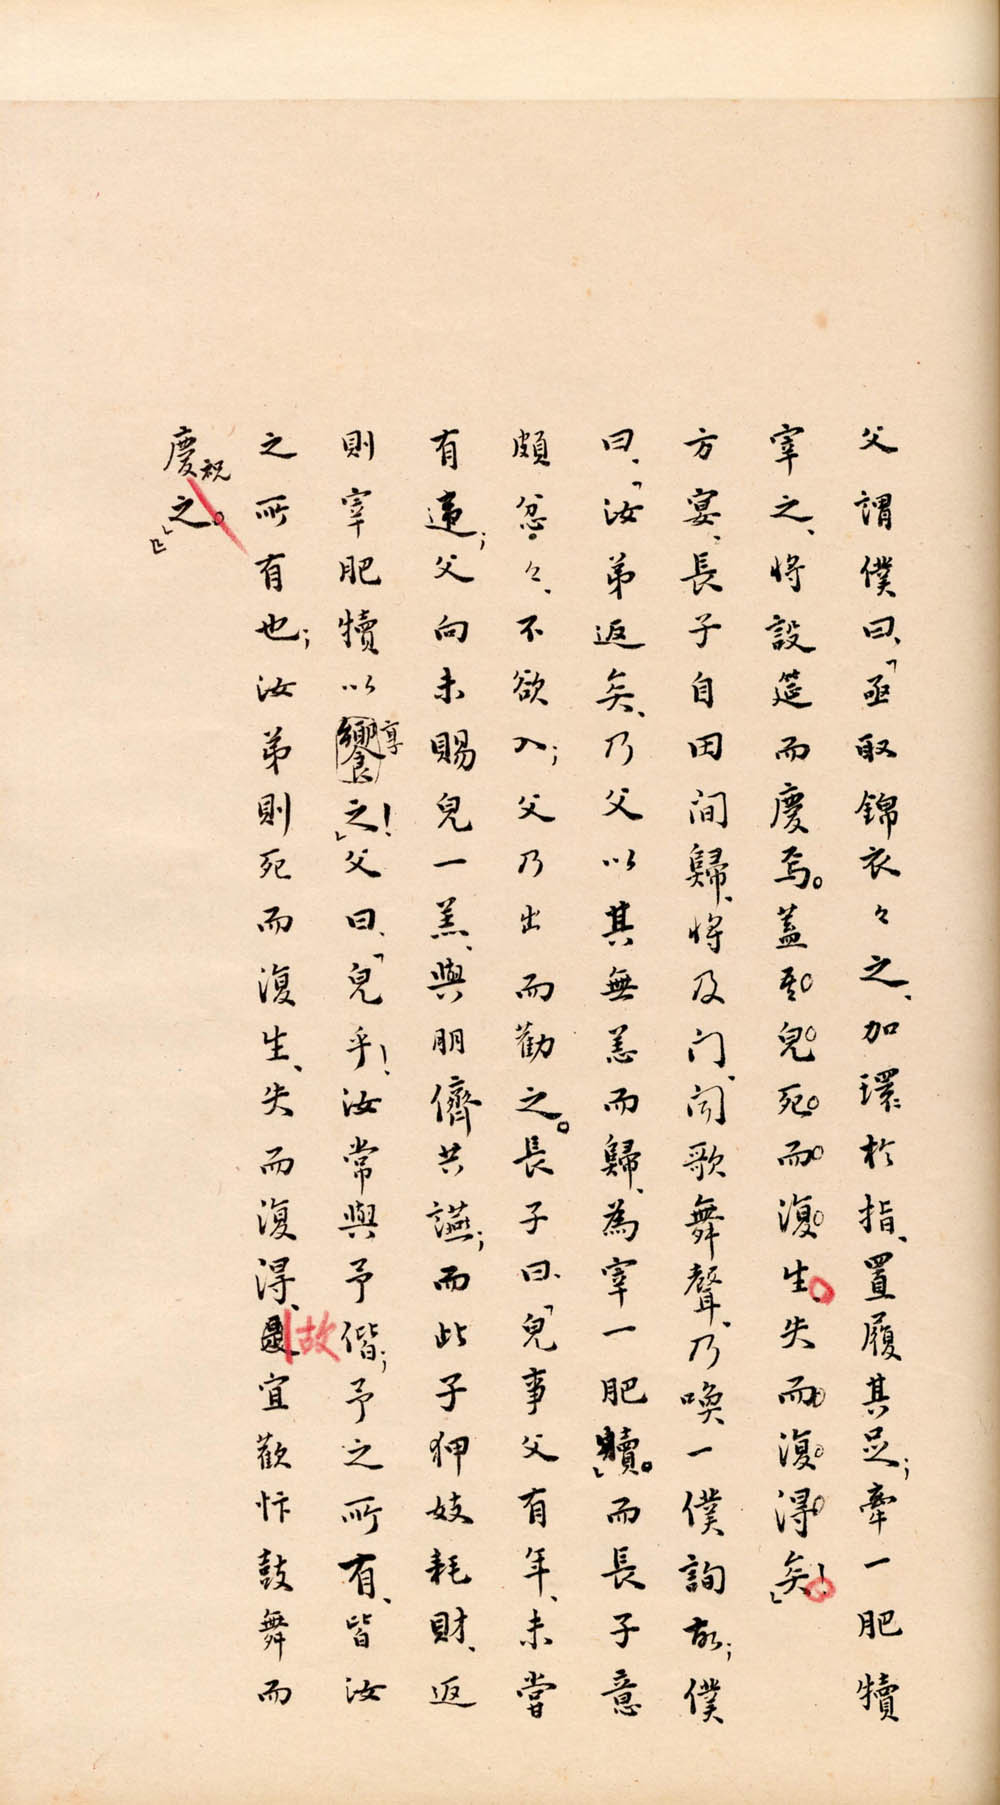 父謂僕曰、「亟取錦衣々之、加環於指、置履其足；牽一肥犢
宰之、將設筵而慶焉。蓋吾兒死而復生、失而復得矣！」
方宴、長子自田间歸、將及门、闻歌舞聲、乃喚一僕詢故；僕
曰、「汝弟返矣、乃父以其無恙而歸、為宰一肥犢。」而長子意
頗忿々、不欲入；父乃出而勸之。長子曰、「兒事父有年、未嘗
有違；父向未賜兒一羔、與朋儕共讌；而此子狎妓耗財、返
則宰肥犢以饗享之！」父曰、「兒乎！汝常與予偕；予之所有、皆汝
之所有也；汝弟則死而復生、失而復得、故宜歡忭鼓舞而
慶祝之。」